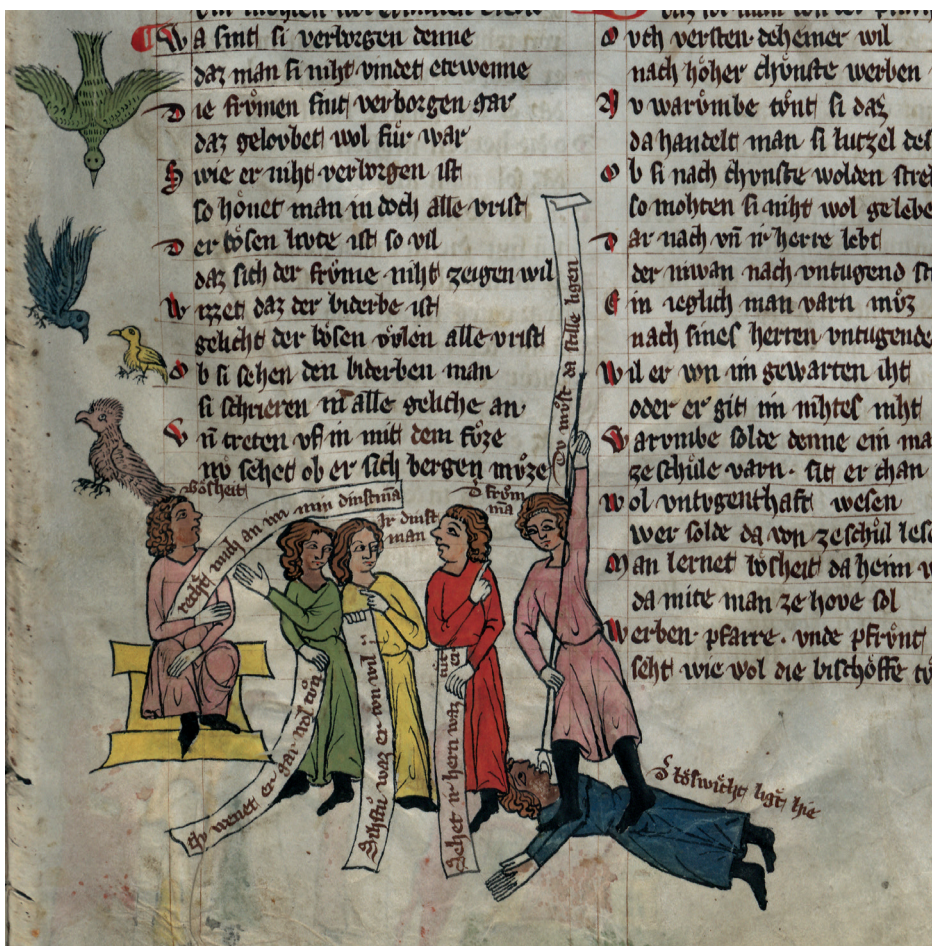 A sint si verborgen denne
daz man si niht vindet etewenne
Die frůmen sint verborgen gar
daz gelovbet wol fůr war
Swie er niht verborgen ist
so hônet man in doch alle vrist
Der bôsen livte ist so vil
daz sich der frůme niht zeigen wil
Wizzet daz der biderbe ist
gelicht der bôsen vvlen alle vrist
Ob si sehen den biderben man
si schrieren in alle geliche an
Vñ treten vf in mit dem fůze
nv sehet ob er sich bergen mvze
vch versten deheiner wil
nach hôher chvnste werben
Nv warvmbe tvnt si daz
da handelt man si lutzel
Ob si nach chvnste wolden
so mohten si niht wol
Dar nach vñ ir herre lebt
der niwan nach vntugend
Ein ieglich man varn mvz
nach sines herren vntugende
Wil er von im gewarten iht
oder er git im nihtes niht
Warvmbe solde denne ein
ze schůle varn. sit er chan
Wol vntvgenthaft wesen
wer solde da von ze schůl
Man lernet bôsheit da heim
da mite man ze hove sol
Werben. pfarre. vnde pfrvnt
seht wie wol die bischôffe
bôsheit
rechet mich an im min dinstman
Ir dinst
man
d frům
mã
dv mvst da stille ligen
Ir wenet er gar wol
Sihstu waz er von wil
Sehet ir hern waz er
tůt
d bôswiht ligt hie